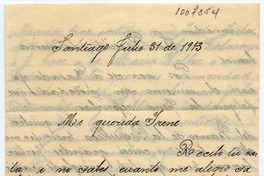 1007854
Santiago Julio 31 de 1913
Mi querida Irene
Recibo tu car
ta, i no sabes cuanto me alegro sa